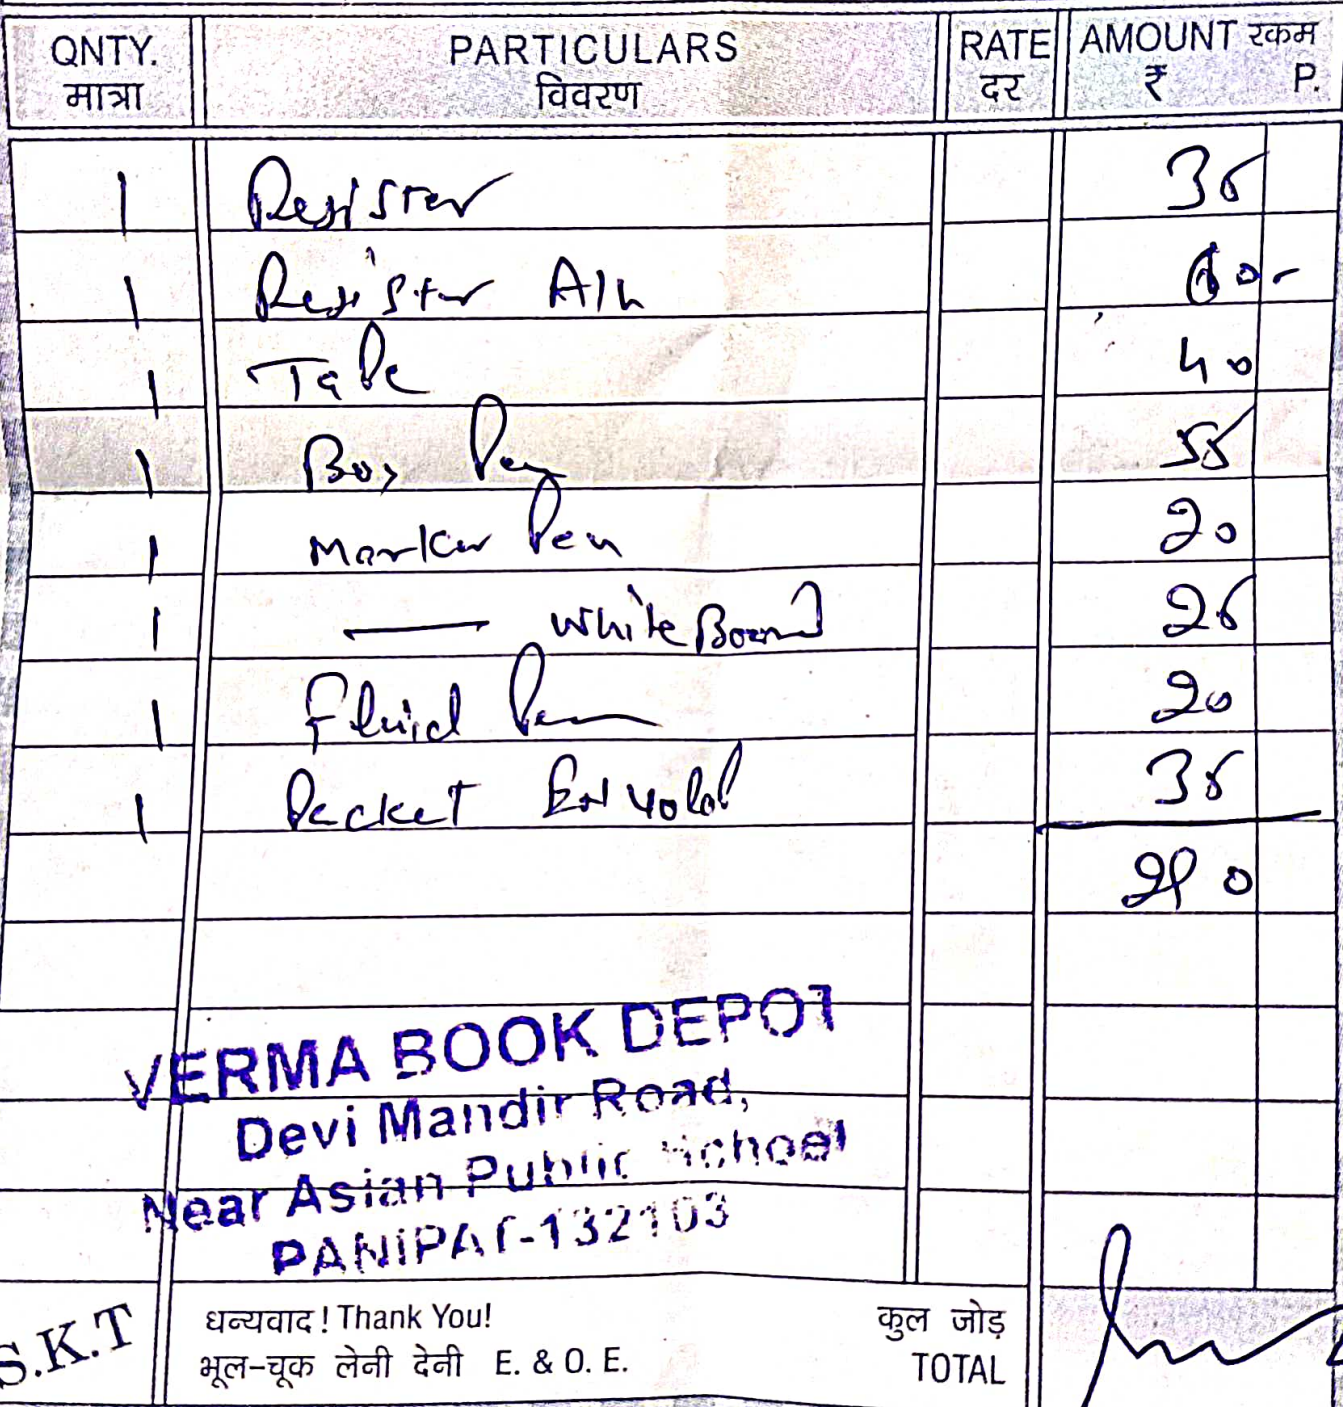 QNTY. PARTICULARS RATE AMOUNT रकम
मात्रा विवरण दर ₹ P.
1 Register 35
1 Register A/h 60-
1 Tape 40
1 Box Pen 55
1 Marker Pen 20
1 — White Board 25
1 Fluid Pen 20
1 Packet 35
290
VERMA BOOK DEPOT
Devi Mandir Road,
Near Asian Public School
PANIPAT-132103
S.K.T
धन्यवाद ! Thank You! कुल जोड़
भूल-चूक लेनी देनी E. & O. E. TOTAL